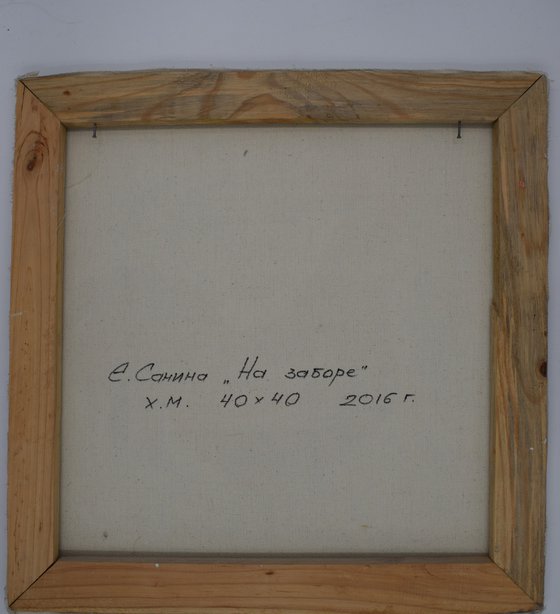 Е. Санина „На заборе"
х.м. 40 × 40 2016 г.